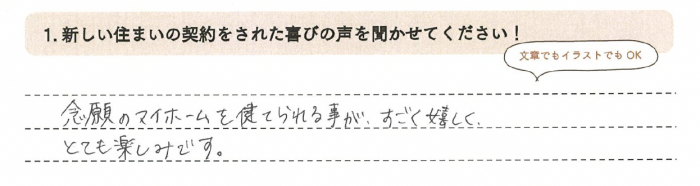 1. 新しい住まいの契約をされた喜びの声を聞かせてください！
文章でもイラストでも OK
念願のマイホームを健てられる事が、すごく嬉しく、
とても楽しみです。